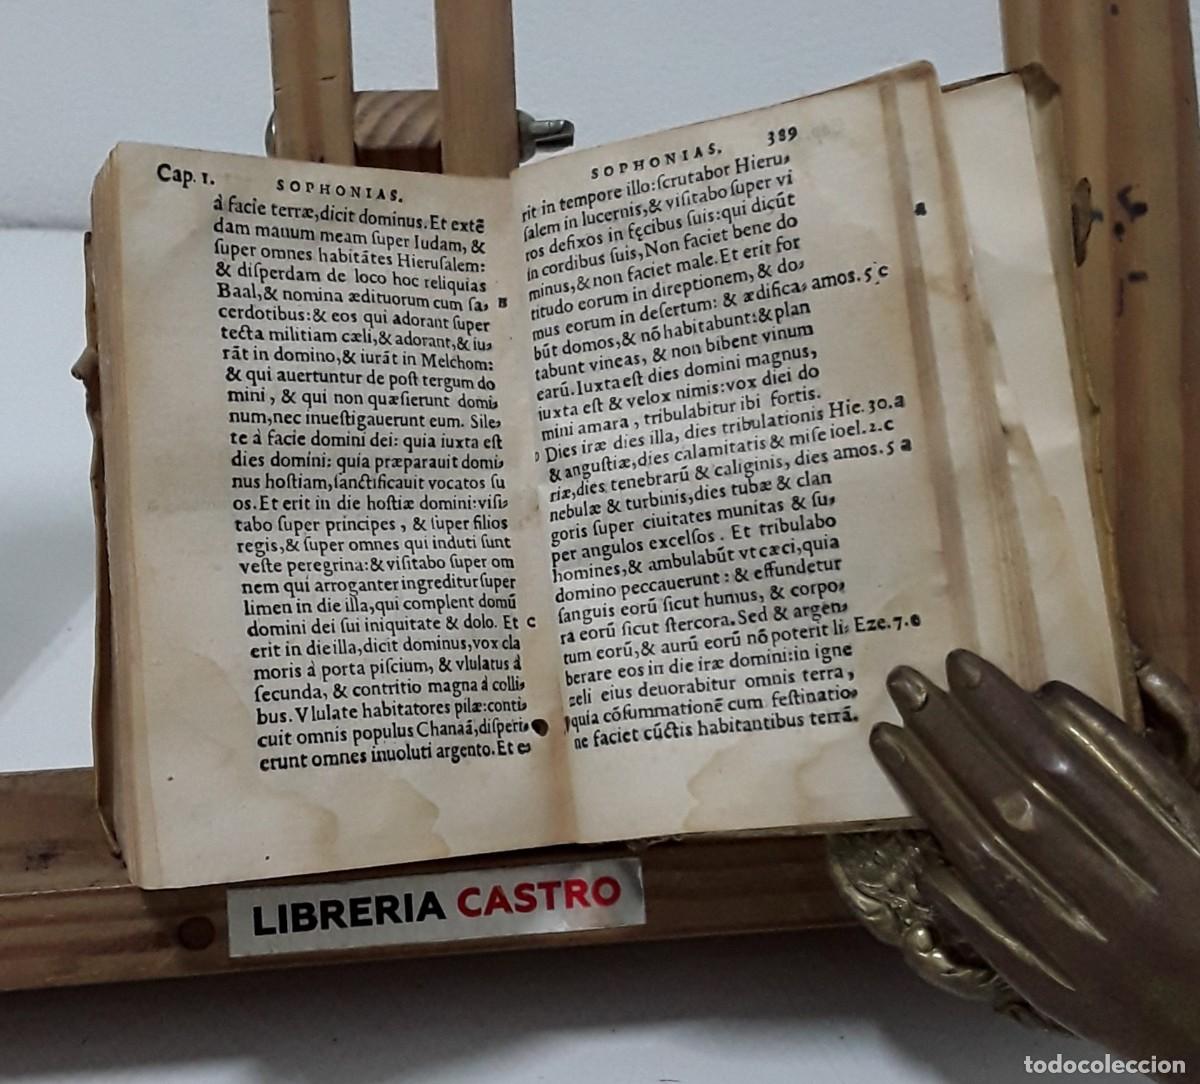 Cap. 1. SOPHONIAS.
à facie terræ,dicit dominus. Et extẽ
dam manum meam ſuper Iudam, &
ſuper omnes habitãtes Hieruſalem:
& diſperdam de loco hoc reliquias
Baal,& nomina ædituorum cum ſa, B
cerdotibus:& eos qui adorant ſuper
tecta militiam cæli,& adorant,& iu,
rãt in domino,& iurãt in Melchom:
& qui auertuntur de poſt tergum do
mini , & qui non quæſierunt domi
num,nec inueſtigauerunt eum. Sile,
te à facie domini dei: quia iuxta eſt
dies domini: quia præparauit domi,
nus hoſtiam,ſanctificauit vocatos ſu
os. Et erit in die hoſtiæ domini:viſi,
tabo ſuper principes , & ſuper filios
regis,& ſuper omnes qui induti ſunt
veſte peregrina:& viſitabo ſuper om
nem qui arroganter ingreditur ſuper
limen in die illa,qui complent domũ
domini dei ſui iniquitate & dolo. Et C
erit in die illa,dicit dominus,vox cla
moris à porta piſcium, & vlulatus à
ſecunda, & contritio magna à colli,
bus. Vlulate habitatores pilæ:conti,
cuit omnis populus Chanaã,diſperi,
erunt omnes inuoluti argento. Et e,
SOPHONIAS. 389
rit in tempore illo:ſcrutabor Hieru,
ſalem in lucernis,& viſitabo ſuper vi
ros defixos in fęcibus ſuis:qui dicũt
in cordibus ſuis, Non faciet bene do
minus,& non faciet male. Et erit for
titudo eorum in direptionem, & do,
mus eorum in deſertum: & ædifica, amos. 5 c
bũt domos,& nõ habitabunt:& plan
tabunt vineas, & non bibent vinum
earũ. Iuxta eſt dies domini magnus,
iuxta eſt & velox nimis:vox diei do
mini amara , tribulabitur ibi fortis.
D Dies iræ dies illa, dies tribulationis Hie. 30.a
& anguſtiæ,dies calamitatis & miſe ioel. 2. c
riæ,dies tenebrarũ & caliginis, dies amos. 5 a
nebulæ & turbinis,dies tubæ & clan
goris ſuper ciuitates munitas & ſu,
per angulos excelſos . Et tribulabo
homines,& ambulabũt vt cæci,quia
domino peccauerunt : & effundetur
ſanguis eorũ ſicut humus, & corpo,
ra eorũ ſicut ſtercora. Sed & argen,
tum eorũ,& aurũ eorũ nõ poterit li, Eze. 7.e
berare eos in die iræ domini:in igne
zeli eius deuorabitur omnis terra,
quia cõſummationẽ cum feſtinatio,
ne faciet cũctis habitantibus terrã.
LIBRERIA CASTRO
todocoleccion